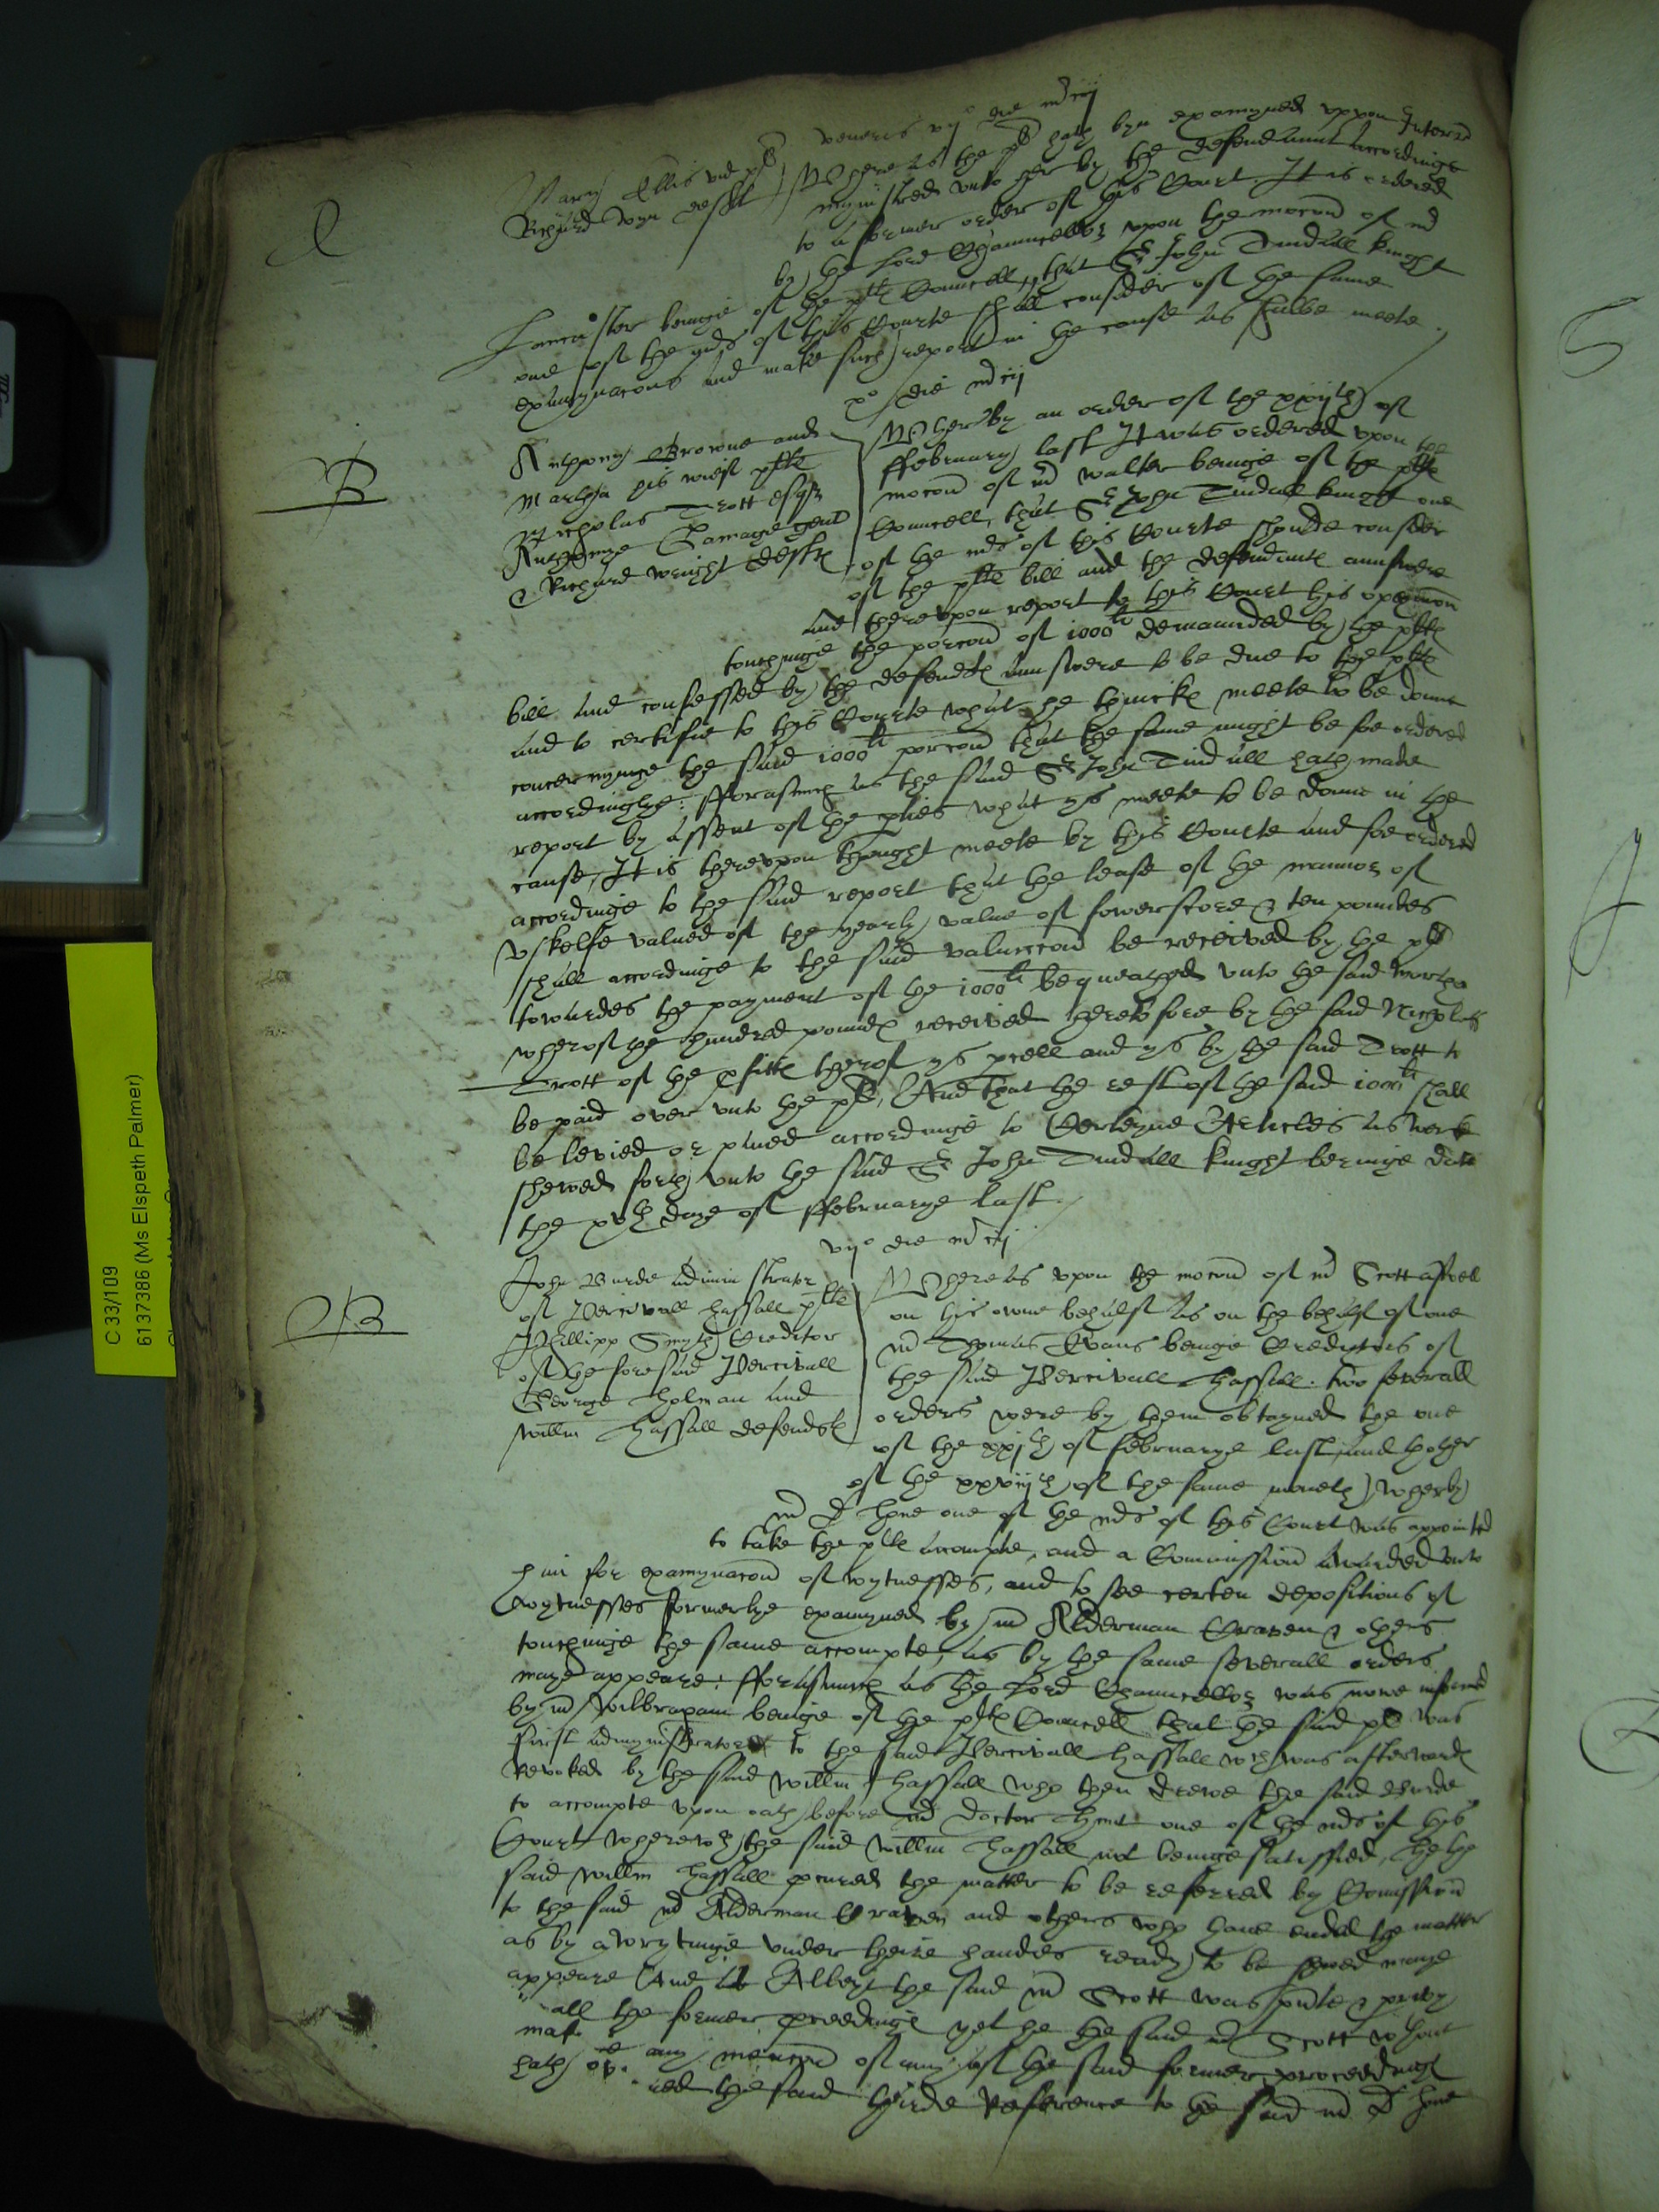 veneris vijº die m'cij
Mary Ellis vid pl Whereas the pl hath byn examyned vppon Interr
Richard deft mynistred vnto her by the defendaunt accordinge
to a former order of this Court. It is ordered
by the Lord Chauncellor vpon the mocon of mr
Lancaster beinge of the plts Councell, that Sr John Tindall knight
one of the mrs of this Courte shall consider of the same
examynacons and make such report in the cause as shalbe meete
xº die m'cij
B
Anthony Browne and
Martha his wief plts
Nicholas Trott esqr
Anthonye Gamage gent
& Richard wright defts
Wherby an order of the xxijth of
ffebruary last It was ordered vpon the
mocon of mr walter beinge of the plts
Councell, that Sr John Tindall knight one
of the mrs of this Courte shoulde consider
of the plts bill and the defendants aunswere
and therevpon report to this Court his opynion
touchinge the porcon of 1000li demaunded by the plts
bill and confessed by the defendts aunswere to be due to the plts
and to certifie to this Courte what he thincks meete to be donne
concernynge the said 1000li porcon that the same might be soe ordered
accordinglye: fforasmuch as the said Sr John Tindall hath made
report by assent of the pties what ys meete to be donne in the
cause, It is therevpon thought meete by this Courte and soe ordered
accordinge to the said report that the lease of the mannor of
vskelfe valued of the yearly value of fowerscore & ten poundes
shall accordinge to the said valuacon be received by the pl
towardes the payment of the 1000li bequeathed vnto the said Martha
wherof the hundred pounds received heretofore by the said Nicholas
Trott of the pfitts therof ys pcell and ys by the said Trott to
be paid over vnto the pl, And that the rest of the said 1000li shall
be levied or pued accordinge to Certeyne Articles as were
shewed forth vnto the said Sr John Tindall knight beringe date
the xvth daye of ffebruarye last.
vijº die m'cij
B
John Burde administrator
of Percivall hassall plts
Phillipp Smyth Creditor
of the foresaid Percivall
George holman and
willm hassall defendts
Whereas vpon the mocon of mr Scott aswell
on his owne behalf as on the behalf of one
mr Thomas Evans beinge Creditors of
the said Percivall hassall. two severall
orders were by them obtayned the one
of the xxjth of february last, and thother
of the xxviijth of the same moneth wherby
mr D hone one of the mrs of this Court was appointed
to take the plts accompte, and a Commission awarded vnto
him for examynacon of wytnesses, and to see certen depositions of
wytnesses formerlye examyned by mr Alderman Craven & others
touchinge the same accompte, as by the same severall orders
maye appeare: fforasmuch as the Lord Chauncellor was nowe informed
by mr Wilbraham beinge of the plts Councell that the said pl was
first administrator to the said Percivall hassall wch was afterwards
Revoked by the said willm hassall who then drewe the said Burde
to accompte vpon oath before mr doctor hunt one of the mrs of this
Court wherewth the said willm hassall not beinge satisfied, he the
said willm hassall pcured the matter to be referred by Comission
to the said mr Alderman Craven and others who have ended the matter
as by a wrytinge vnder theire handes ready to be shewed maye
appeare And Albeyt the said mr Scott was pnte & privy
all the former pceedings yet he the said mr Scott wthout
any mencon of any of the said former proceedings
hath the said thirde Reference to the said mr D hone
C 33/109
6137386 (Ms Elspeth Palmer)